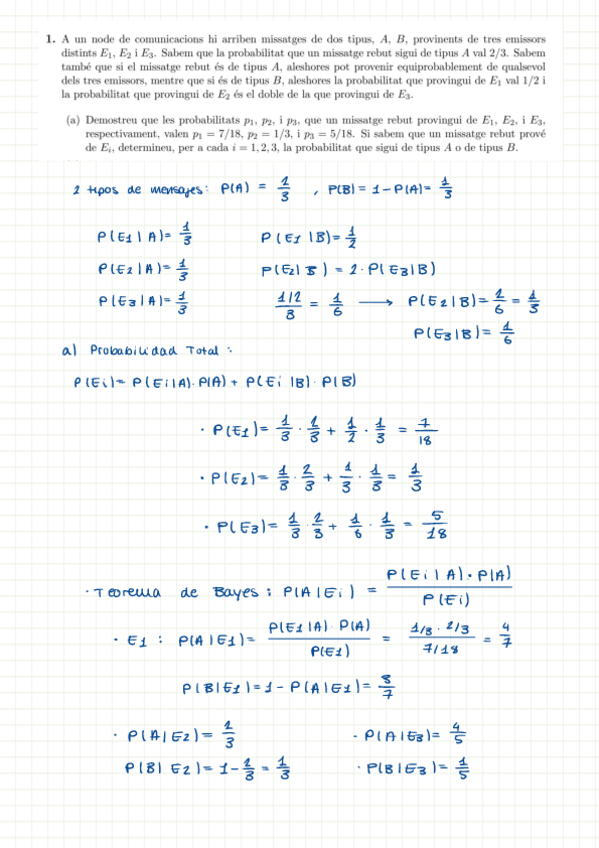 1. A un node de comunicacions hi arriben missatges de dos tipus, A, B, provinents de tres emissors
distints E₁, E₂ i E₃. Sabem que la probabilitat que un missatge rebut sigui de tipus A val 2/3. Sabem
també que si el missatge rebut és de tipus A, aleshores pot provenir equiprobablement de qualsevol
dels tres emissors, mentre que si és de tipus B, aleshores la probabilitat que provingui de E₁ val 1/2 i
la probabilitat que provingui de E₂ és el doble de la que provingui de E₃.
(a) Demostreu que les probabilitats p₁, p₂, i p₃, que un missatge rebut provingui de E₁, E₂, i E₃,
respectivament, valen p₁ = 7/18, p₂ = 1/3, i p₃ = 5/18. Si sabem que un missatge rebut prové
de Eᵢ, determineu, per a cada i = 1, 2, 3, la probabilitat que sigui de tipus A o de tipus B.
2 tipos de mensajes: P(A) = 2/3 , P(B) = 1 - P(A) = 1/3
P(E1|A) = 1/3 P(E1|B) = 1/2
P(E2|A) = 1/3 P(E2|B) = 2·P(E3|B)
P(E3|A) = 1/3 (1/2)/3 = 1/6 → P(E2|B) = 2/6 = 1/3
P(E3|B) = 1/6
a) Probabilidad Total:
P(Ei) = P(Ei|A)·P(A) + P(Ei|B)·P(B)
· P(E1) = 1/3 · 2/3 + 1/2 · 1/3 = 7/18
· P(E2) = 1/3 · 2/3 + 1/3 · 1/3 = 1/3
· P(E3) = 1/3 · 2/3 + 1/6 · 1/3 = 5/18
· Teorema de Bayes: P(A|Ei) = P(Ei|A)·P(A) / P(Ei)
· E1: P(A|E1) = P(E1|A)·P(A) / P(E1) = (1/3 · 2/3) / (7/18) = 4/7
P(B|E1) = 1 - P(A|E1) = 3/7
· P(A|E2) = 2/3 · P(A|E3) = 4/5
P(B|E2) = 1 - 2/3 = 1/3 · P(B|E3) = 1/5